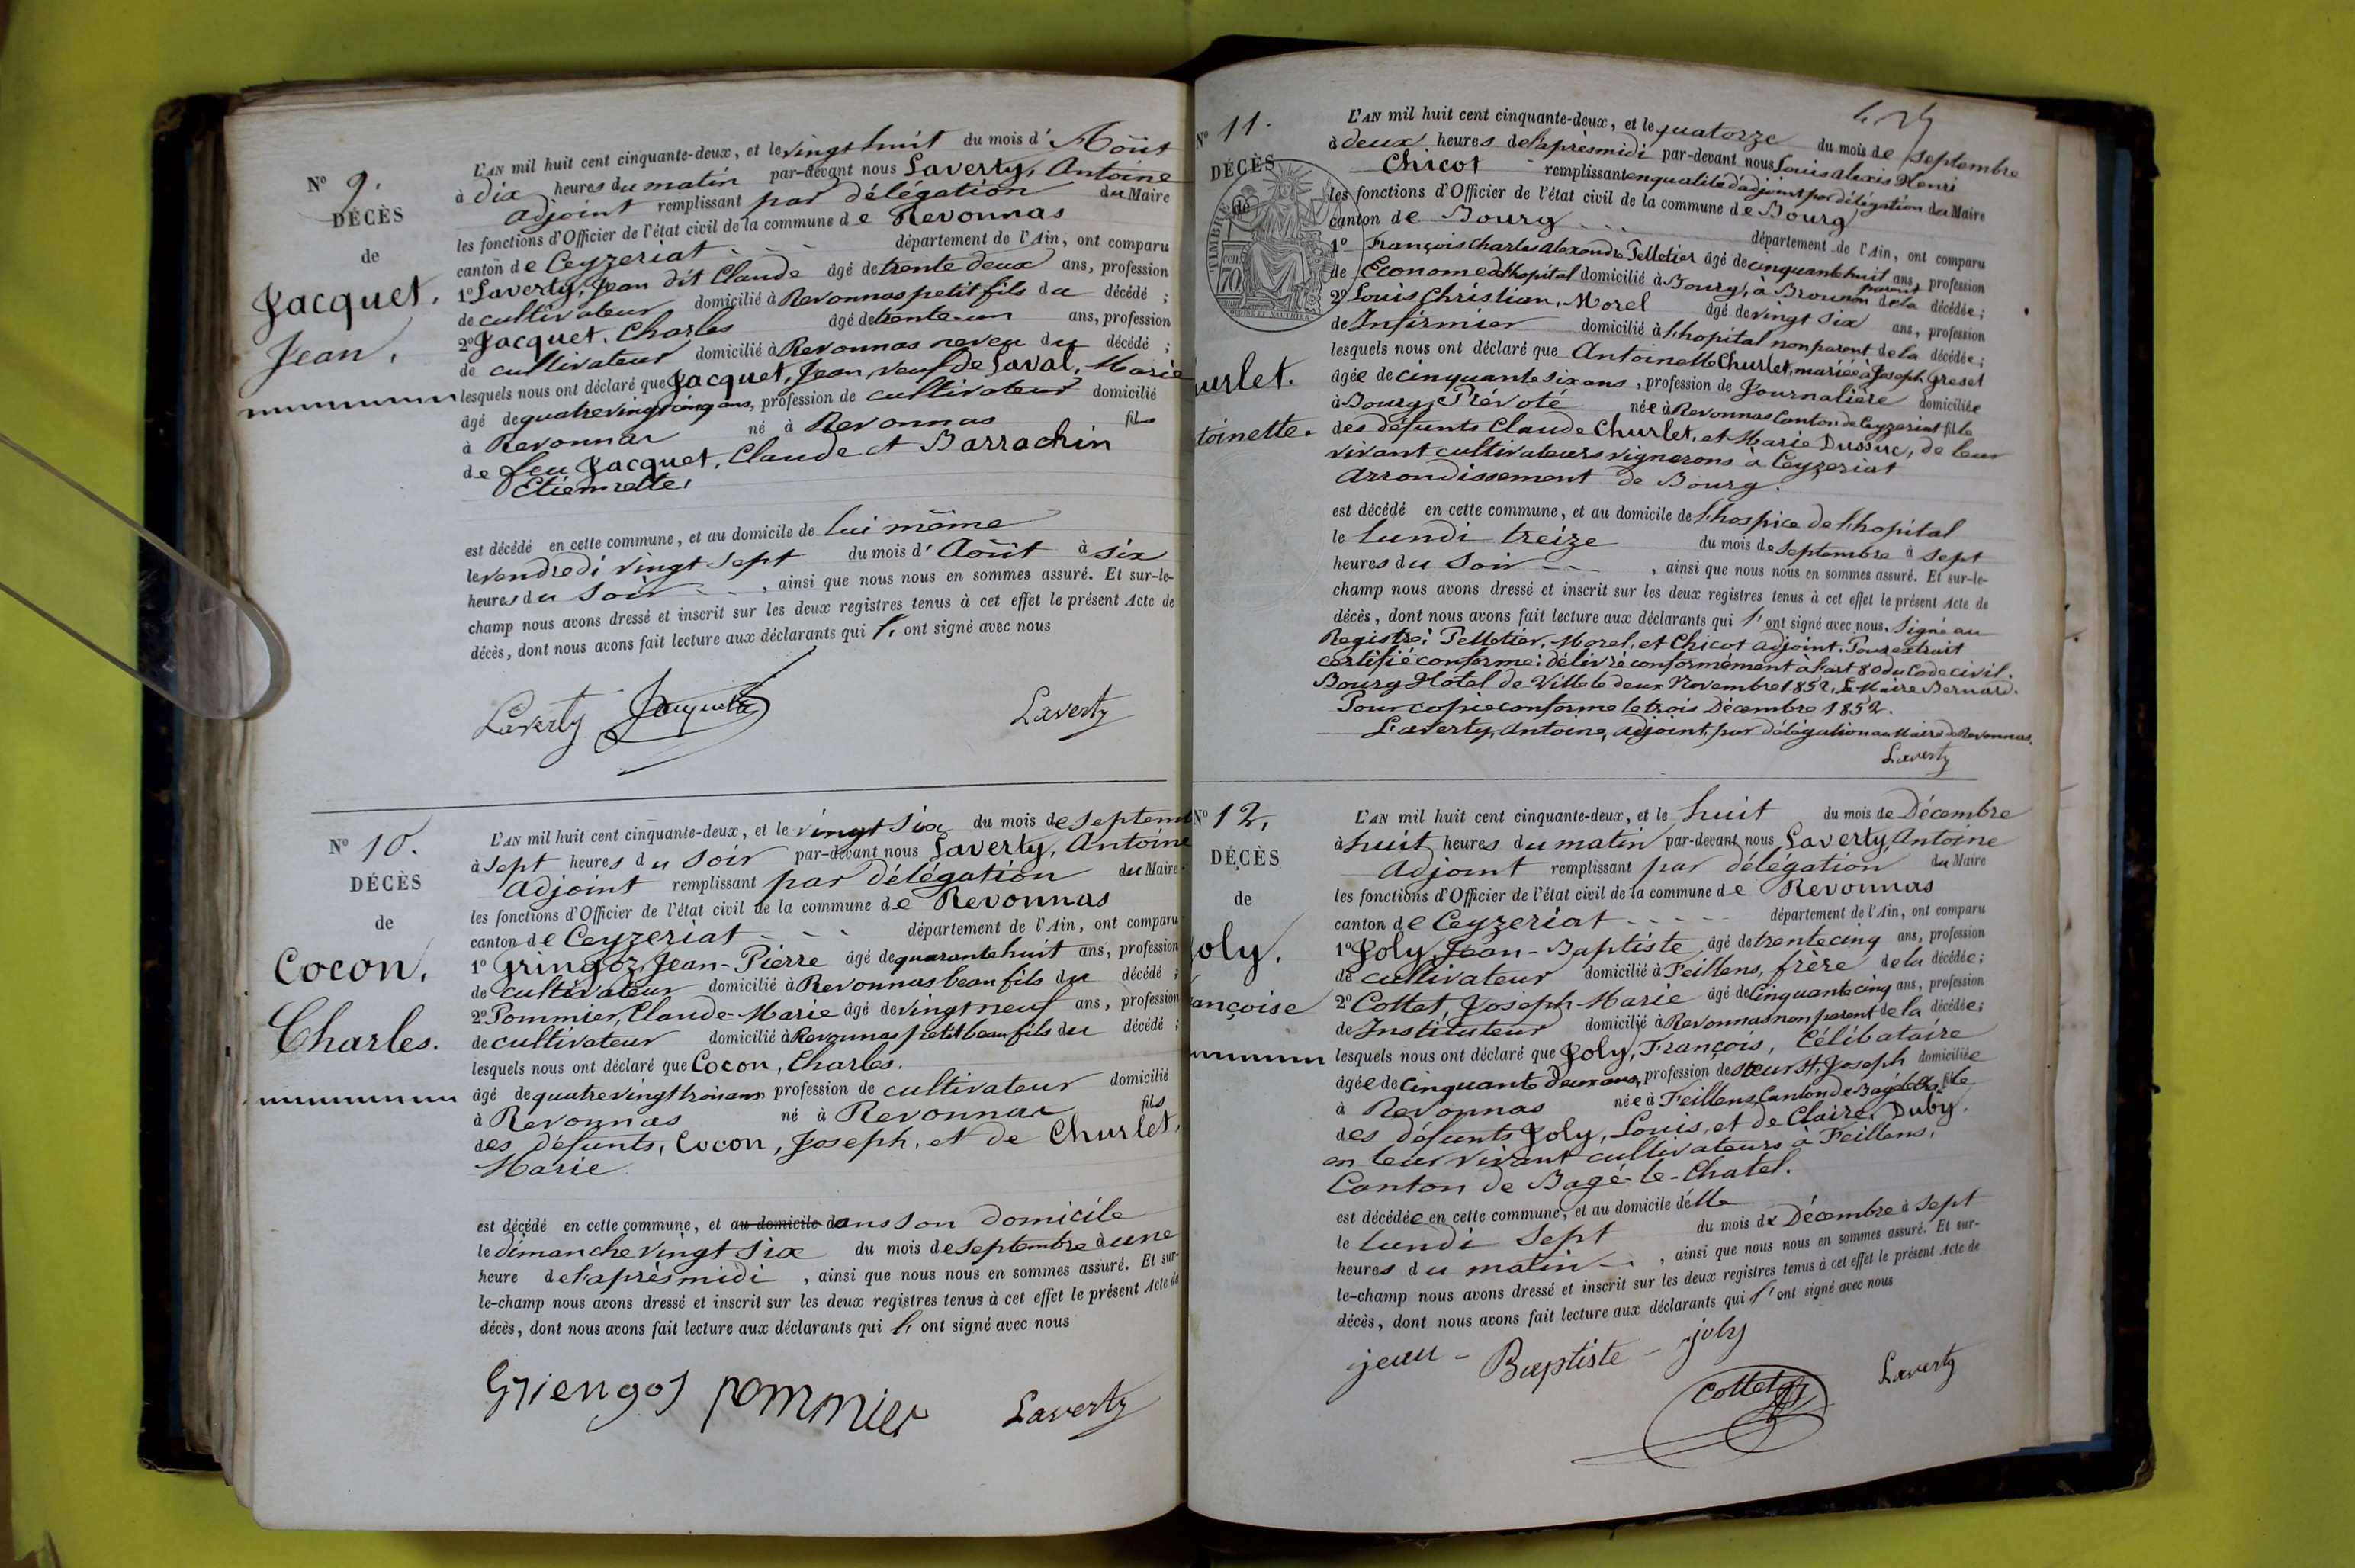 N° 9.
DÉCÈS
de
Jacquet,
Jean,
L'AN mil huit cent cinquante-deux, et le vingt huit du mois d' Août
à dix heures du matin par-devant nous Laverty, Antoine
adjoint remplissant par délégation du Maire
les fonctions d'Officier de l'état civil de la commune de Revonnas
canton de Ceyzeriat département de l'Ain, ont comparu
1° Laverty, Jean dit Claude âgé de trente deux ans, profession
de cultivateur domicilié à Revonnas petit fils du décédé ;
2° Jacquet, Charles âgé de trente-un ans, profession
de cultivateur domicilié à Revonnas neveu du décédé ;
lesquels nous ont déclaré que Jacquet, Jean veuf de Laval, Marie
âgé de quatrevingt cinq ans, profession de cultivateur domicilié
à Revonnas né à Revonnas fils
de feu Jacquet, Claude et Barrachin
Etiennette,
est décédé en cette commune, et au domicile de lui même
le vendredi vingt sept du mois d' Août à six
heures du soir , ainsi que nous nous en sommes assuré. Et sur-le-
champ nous avons dressé et inscrit sur les deux registres tenus à cet effet le présent Acte de
décès, dont nous avons fait lecture aux déclarants qui l' ont signé avec nous
Laverty Jacquet Laverty
N° 10.
DÉCÈS
de
Cocon,
Charles.
L'AN mil huit cent cinquante-deux, et le vingt six du mois de septem
à sept heures du soir par-devant nous Laverty, Antoine
adjoint remplissant par délégation du Maire
les fonctions d'Officier de l'état civil de la commune de Revonnas
canton de Ceyzeriat département de l'Ain, ont comparu
1° Gringoz, Jean-Pierre âgé de quarante huit ans, profession
de cultivateur domicilié à Revonnas beau fils du décédé ;
2° Pommier, Claude-Marie âgé de vingt neuf ans, profession
de cultivateur domicilié à Revonnas petit beau fils du décédé ;
lesquels nous ont déclaré que Cocon, Charles.
âgé de quatrevingt trois ans profession de cultivateur domicilié
à Revonnas né à Revonnas fils
des défunts, Cocon, Joseph, et de Churlet,
Marie
est décédé en cette commune, et au domicile dans son domicile
le dimanche vingt six du mois de septembre à une
heure de l'après midi , ainsi que nous nous en sommes assuré. Et sur-
le-champ nous avons dressé et inscrit sur les deux registres tenus à cet effet le présent Acte de
décès, dont nous avons fait lecture aux déclarants qui l' ont signé avec nous
Griengos pommier Laverty
N° 11.
DÉCÈS
de
urlet.
toinette.
TIMBRE
70
L'AN mil huit cent cinquante-deux, et le quatorze du mois de septembre
à deux heures de l'après midi par-devant nous Louis Alexis Henri
Chicot remplissant en qualité d'adjoint par délégation du Maire
les fonctions d'Officier de l'état civil de la commune de Bourg
canton de Bourg département de l'Ain, ont comparu
1° François Charles Alexandre Pelletier âgé de cinquante huit ans, profession
de Econome de l'hopital domicilié à Bourg, a Brou non parent de la décédée ;
2° Louis Christian, Morel âgé de vingt six ans, profession
de Infirmier domicilié à l'hopital non parent de la décédée ;
lesquels nous ont déclaré que Antoinette Churlet, mariée à Joseph Greset
âgée de cinquante six ans, profession de Journalière domiciliée
à Bourg, Prévoté née à Revonnas Canton de Ceyzeriat fille
des défunts Claude Churlet, et Marie Dussuc, de leur
vivant cultivateurs vignerons à Ceyzeriat
Arrondissement de Bourg.
est décédé en cette commune, et au domicile de l'hospice de l'hopital
le lundi treize du mois de septembre à sept
heures du soir , ainsi que nous nous en sommes assuré. Et sur-le-
champ nous avons dressé et inscrit sur les deux registres tenus à cet effet le présent Acte de
décès, dont nous avons fait lecture aux déclarants qui l' ont signé avec nous. Signé au
Registre: Pelletier, Morel, et Chicot adjoint. Pour extrait
certifié conforme: délivré conformément à l'art 80 du Code civil.
Bourg Hotel de Ville le deux Novembre 1852, Le Maire Bernard.
Pour copie conforme le trois Décembre 1852.
Laverty, Antoine, adjoint, par délégation au Maire de Revonnas.
Laverty
N° 12,
DÉCÈS
de
oly,
ançoise
L'AN mil huit cent cinquante-deux, et le huit du mois de Décembre
à huit heures du matin par-devant nous Laverty, Antoine
adjoint remplissant par délégation du Maire
les fonctions d'Officier de l'état civil de la commune de Revonnas
canton de Ceyzeriat département de l'Ain, ont comparu
1° Joly, Jean-Baptiste âgé de trente cinq ans, profession
de cultivateur domicilié à Feillens, frère de la décédée ;
2° Cottet, Joseph-Marie âgé de Cinquante cinq ans, profession
de Instituteur domicilié à Revonnas non parent de la décédée ;
lesquels nous ont déclaré que Joly, François, Célibataire
âgée de cinquante deux ans, profession de sœur St. Joseph domiciliée
à Revonnas née à Feillens, Canton de Bagé fille
des défunts Joly, Louis, et de Claire, Duby.
en leur vivant cultivateurs à Feillens,
Canton de Bagé-le-Chatel.
est décédée en cette commune, et au domicile d'elle
le lundi sept du mois de Décembre à sept
heures du matin , ainsi que nous nous en sommes assuré. Et sur-
le-champ nous avons dressé et inscrit sur les deux registres tenus à cet effet le présent Acte de
décès, dont nous avons fait lecture aux déclarants qui l' ont signé avec nous
jean - Baptiste - joly
Cottet Laverty